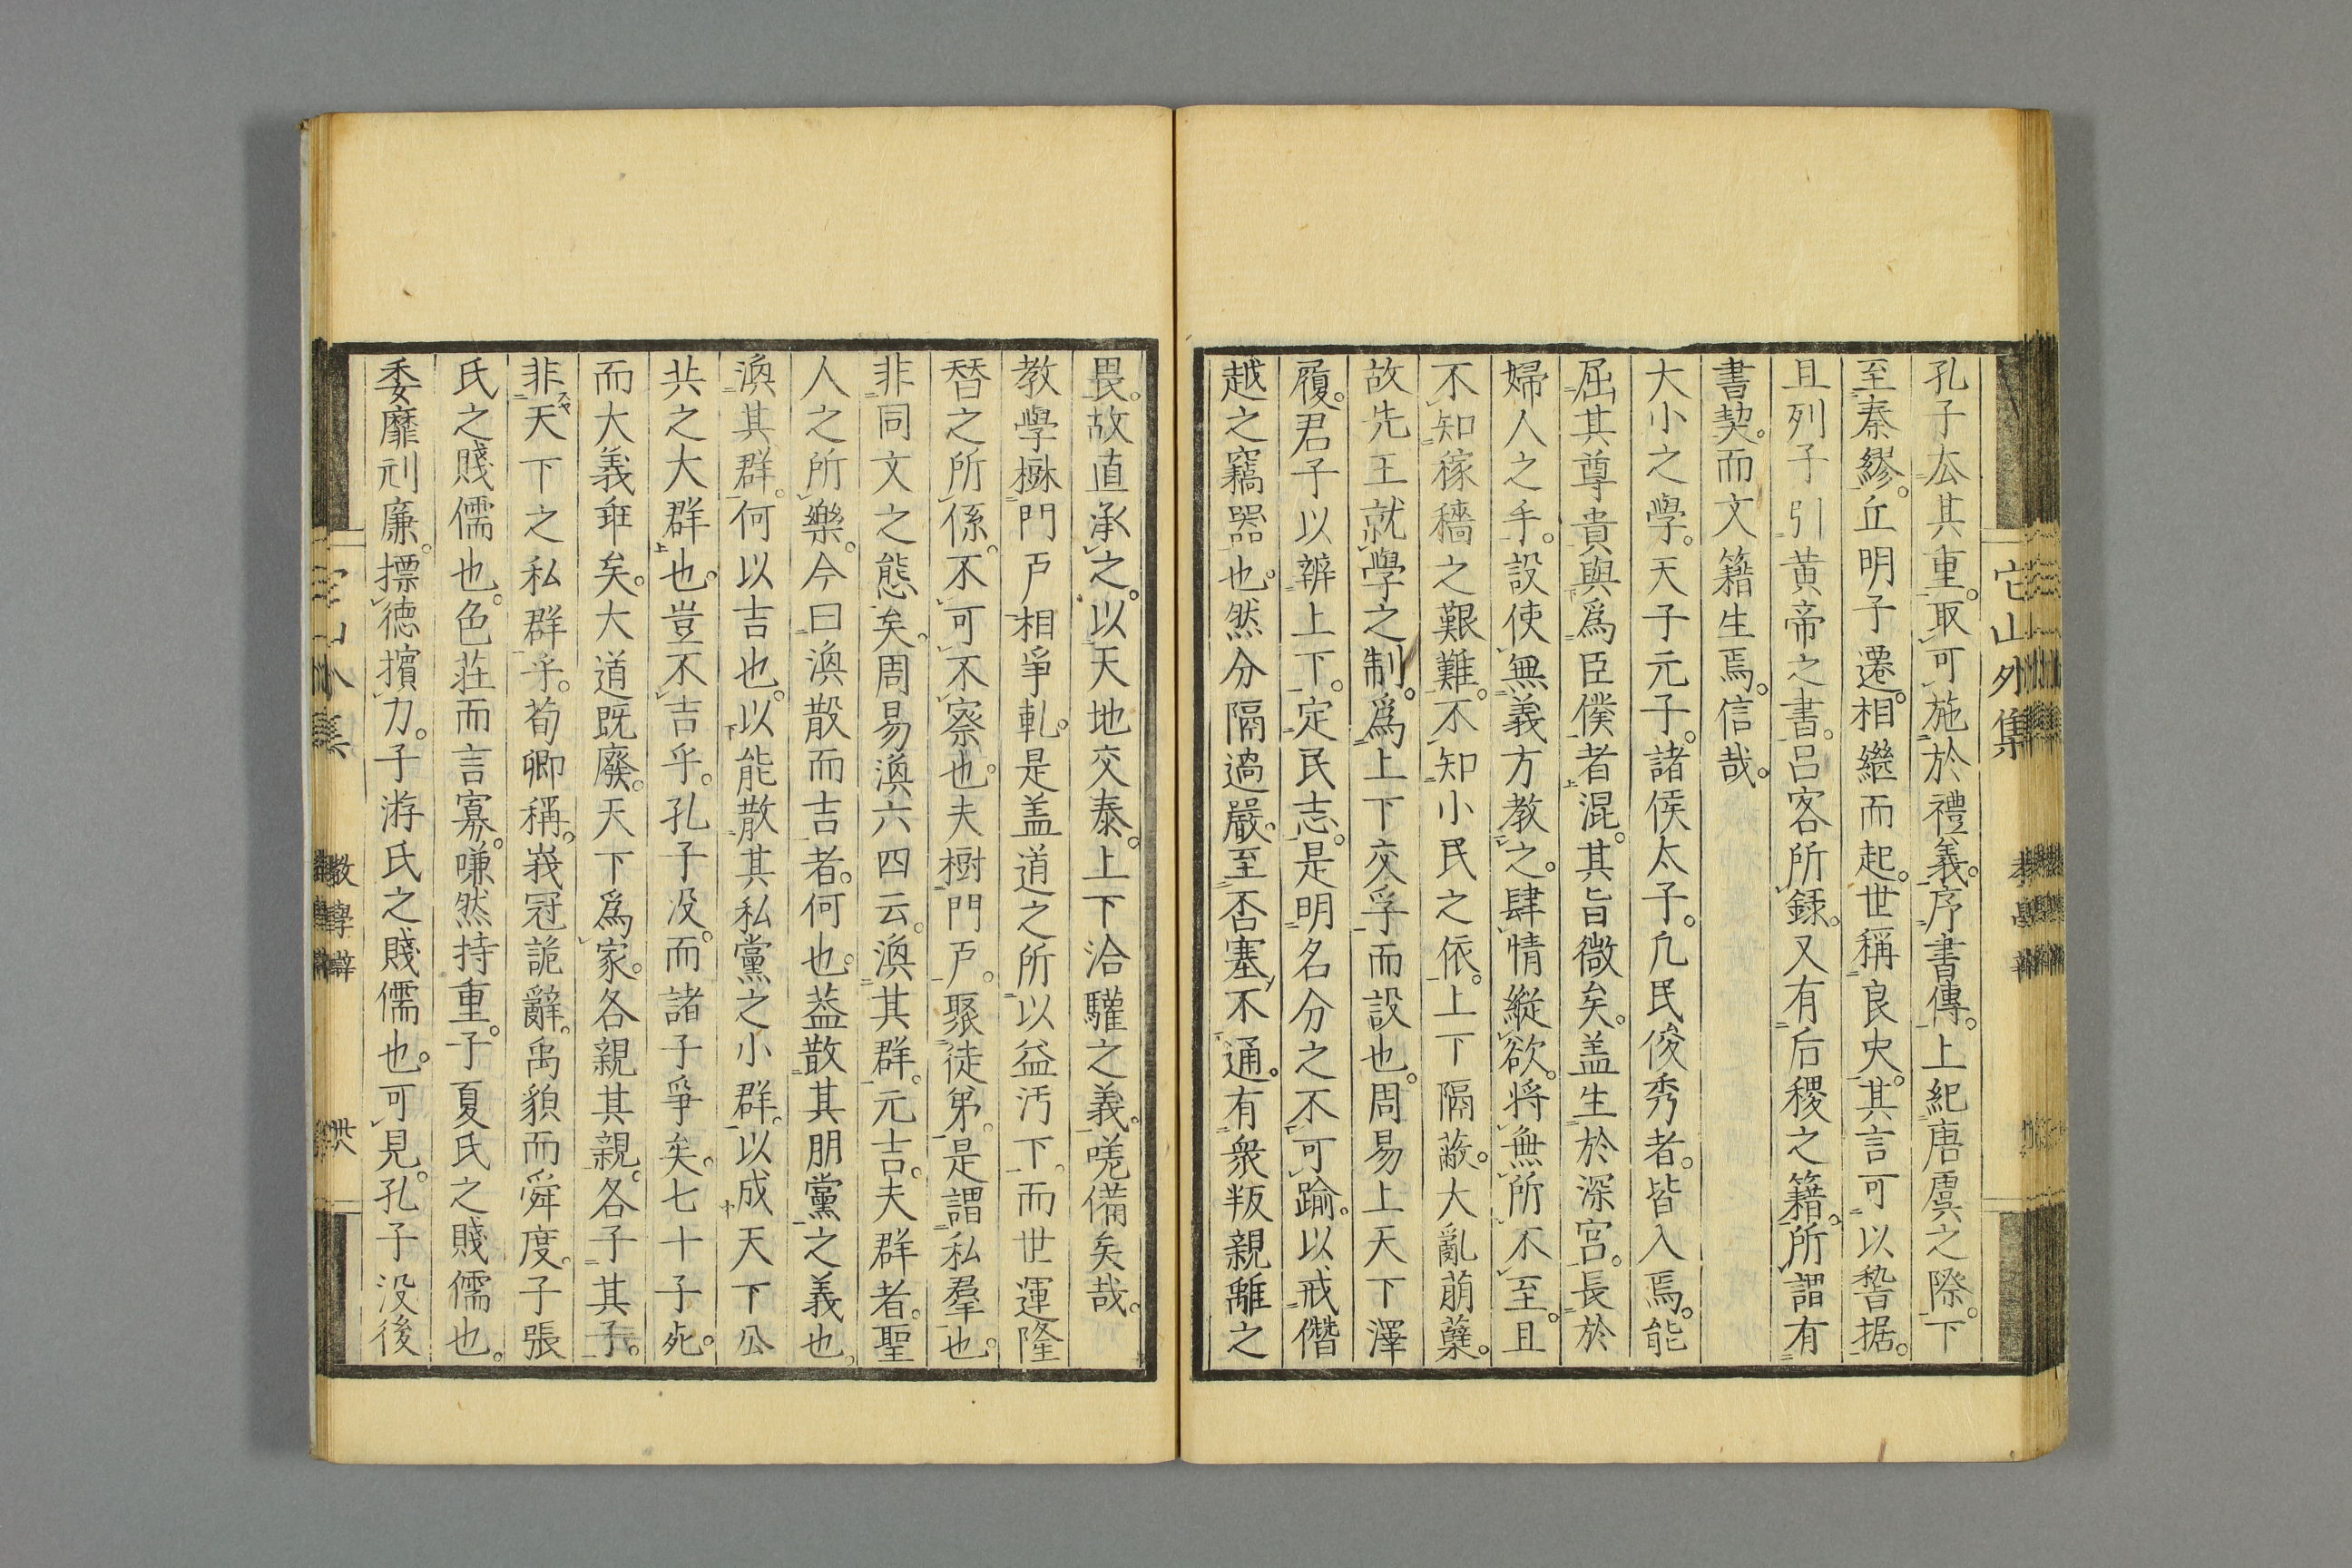 它山外集
孔子厺其重。取可施於禮義。序書傳。上紀唐虞之際。下
至秦繆。丘明子遷。相繼而起。世稱良史。其言可以㫼据。
且列子引黄帝之書。呂客所録。又有后稷之籍。所謂有
書契。而文籍生焉。信哉。
大小之學。天子元子。諸侯太子。凢民俊秀者。皆入焉。能
屈其尊貴與爲臣僕者混。其旨微矣。盖生於深宮。長於
婦人之手。設使無義方教之。肆情縱欲。将無所不至。且
不知稼穡之艱難。不知小民之依。上下隔蔽。大亂萌蘖。
故先王就學之制。爲上下交孚而設也。周易上天下澤
履。君子以辨上下。定民志。是明名分之不可踰。以戒僭
越之竊器也。然分隔過嚴。至否塞不通。有衆叛親離之
畏。故直承之。以天地交泰。上下洽驩之義。嗟備矣哉。
教學楙門戸相爭軋。是盖道之所以益汚下。而世運隆
替之所係。不可不察也。夫樹門戸。聚徒弟。是謂私羣也。
非同文之態矣。周易渙六四云。渙其群。元吉。夫群者。聖
人之所樂。今曰渙散而吉者。何也。葢散其朋黨之義也。
渙其群。何以吉也。以能散其私黨之小群。以成天下公
共之大群也。豈不吉乎。孔子没。而諸子爭矣。七十子死。
而大義乖矣。大道既廢。天下爲家。各親其親。各子其子。
非天下之私群乎。荀卿稱。峩冠詭辭。禹貌而舜度。子張
氏之賤儒也。色荘而言寡。嗛然持重。子夏氏之賤儒也。
委靡刓廉。摽德擯力。子游氏之賤儒也。可見。孔子没後
教學辯